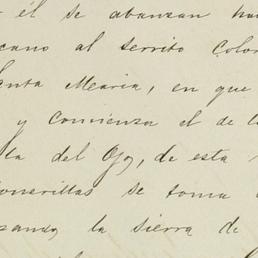 él se abanzan
cano al serrito Colo
anta Maria, en que
y comienza el de
ta del Ojo, de esta
onerillas se toma
sando la sierra de